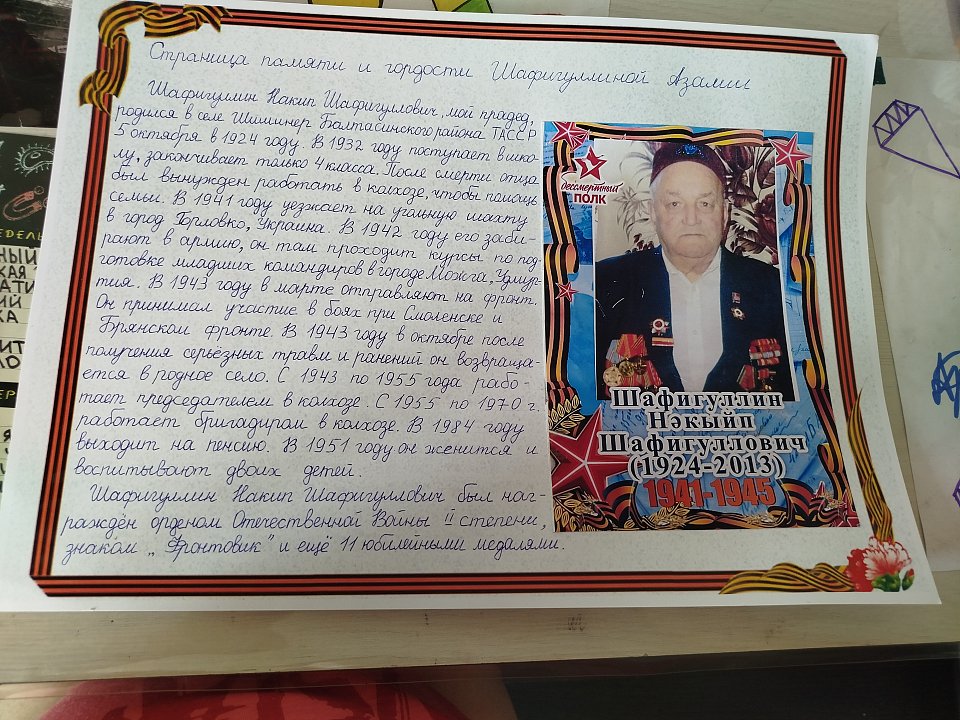 Страница памяти и гордости Шафигуллиной Азалии
Шафигуллин Накип Шафигуллович, мой прадед,
родился в селе Шишинер Балтасинского района ТАССР
5 октября в 1924 году. В 1932 году поступает в шко-
лу, заканчивает только 4 класса. После смерти отца
был вынужден работать в колхозе, чтобы помощь
семьи. В 1941 году уезжает на угольную шахту
в город Горловко, Украина. В 1942 году его заби-
рают в армию, он там проходит курсы по под-
готовке младших командиров в городе Можга, Удмур-
тия. В 1943 году в марте отправляют на фронт.
Он принимал участие в боях при Смоленске и
Брянском фронте. В 1943 году в октябре после
получения серьёзных травм и ранений он возвраща-
ется в родное село. С 1943 по 1955 года рабо-
тает председателем в колхозе. С 1955 по 1970 г.
работает бригадиром в колхозе. В 1984 году
выходит на пенсию. В 1951 году он женится и
воспитывают двоих детей.
Шафигуллин Накип Шафигуллович был наг-
раждён орденом Отечественной Войны II степени,
знаком „Фронтовик" и ещё 11 юбилейными медалями.
бессмертный
ПОЛК
Шафигуллин
Нәкыйп
Шафигуллович
(1924-2013)
1941-1945